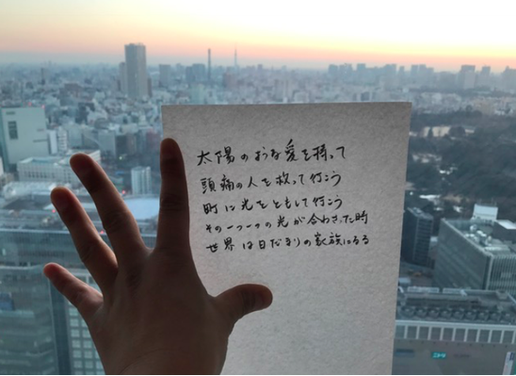 太陽のような愛を持って
頭痛の人を救って行こう
町に光をともして行こう
その一つ一つの光が合わさった時
世界は日だまりの家族になる